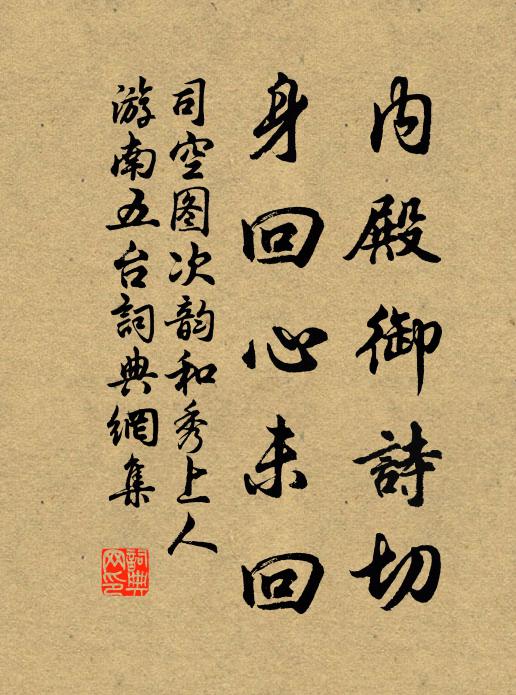 内殿御詩切
身回心未回
司空图次韵和秀上人
游南五台詞典網集
詞典網印